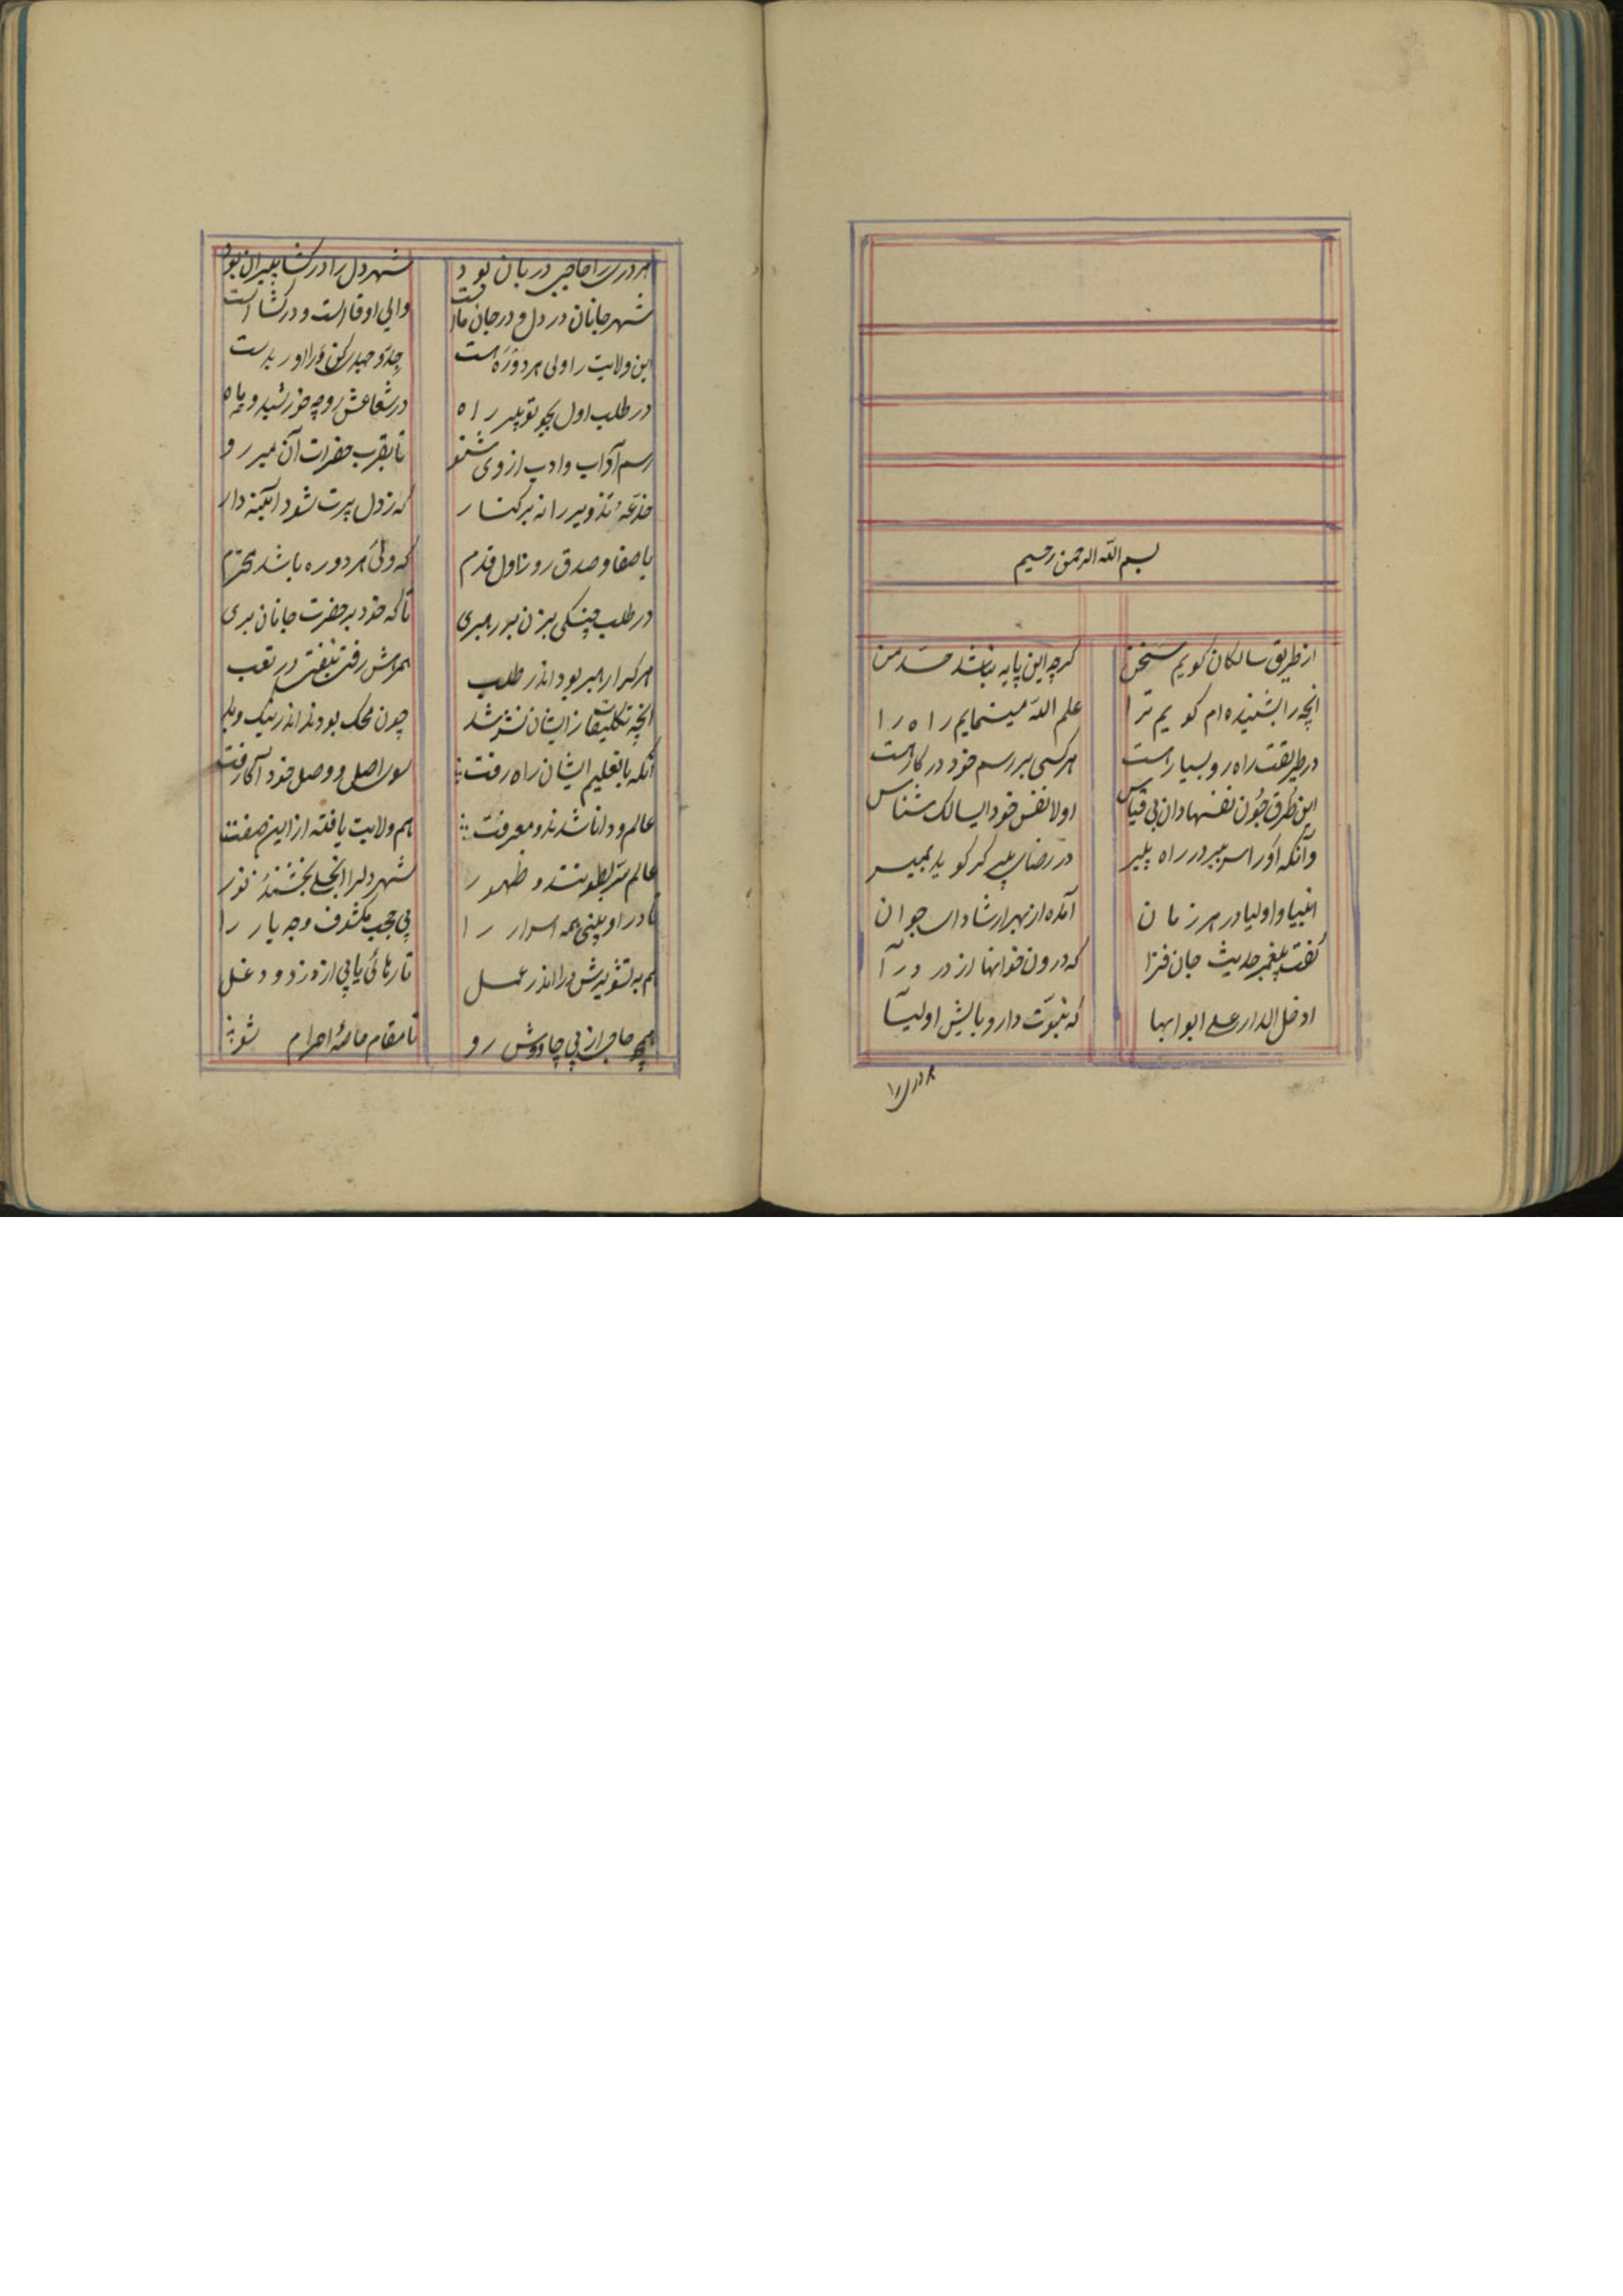 بسم الله الرحمن رحیم
از طریق سالکان کویم سخن
کرچه این پایه نباشد حد من
انچه را بشنیده ام کویم ترا
علم الله مینمایم راه را
در طریقت راه رو بسیار است
هر کسی بر رسم خود در کار است
این طرق چون نفسها دان بی قیاس
اولا نفس خود ای سالک شناس
وانکه او را سر ببر در راه پیر
در رضای پیر کر کوید بمیر
انبیا و اولیا در هر زمان
آمده از بهر ارشاد ای جوان
گفت پیغمبر حدیث جان فزا
که درون خوانها از در درآ
ادخل الدار علی ابوابها
که نبوت دار و بابش اولیا
هر دری را حاجب دربان بود
شهر دل را درکشا پیران بود
شهر جانان در دل و در جان ماست
والی او قا است و درکشا است
این ولایت را ولی هر دوره است
جد و جهد کن ورا اور بدست
در طلب اول بجو تو پیر راه
در شعاعش رو چه خورشید و چه ماه
رسم آداب و ادب از وی شنو
تا بقرب حضرات آن میر رو
خدعه تذویر را نه بر کنار
که ز دل پیرت شود آیینه دار
با صفا و صدق رو ز اول قدم
که ولی هر دوره باشد محترم
در طلب چنکی بزن بر رهبری
تا که خود بر حضرت جانان بری
هر کرا رهبر بود اندر طلب
همرهش رفت نیفتد در تعب
انچه تکلیفات ز ایشان نشر شد
چون محک بودند اندر نیک و بد
آنکه با تعلیم ایشان راه رفت
سوی اصل و وصل خود آکاه رفت
عالم و دانا شدند و معرفت
هم ولایت یافته از این صفت
عالم سر بطونند و ظهور
شهر دلرا انجلی بخشنده نور
تا در او بینی همه اسرار را
بی حجب مکشوف وجه یار را
هم به تشویش در اندر عمل
تا رهائی یابی از دزد و دغل
همچو حاجی از پی چاووش رو
تا مقام جامۀ احرام شو